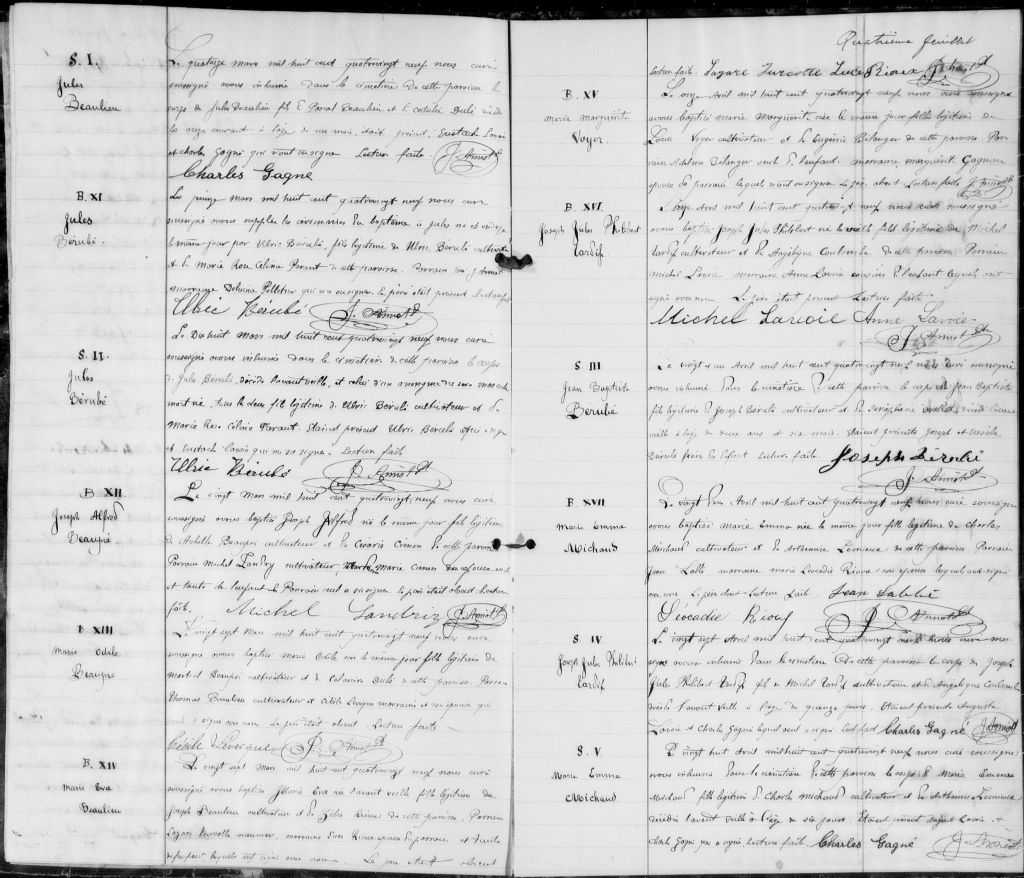 S. I.
Jules
Beaulieu
Le quatorze mars mil huit cent quatrevingt neuf nous curé
soussigné avons inhumé dans le cimetière de cette paroisse le
corps de Jules Beaulieu fils de Pascal Beaulieu et de Dubé décédé
le onze courant à l'âge de un mois. était présent, Eustache Lavoie
et Charles Gagné qui n'ont su signer Lecture faite. J. Amiot
Charles Gagné
B. XI
Jules
Bérubé.
Le mars mil huit cent quatrevingt neuf nous curé
soussigné avons supplée les cérémonies du baptême à Jules né et ondoyé
le même jour par Ulric Bérubé, fils légitime de Ulric Bérubé cultivateur
et de Marie Rose Célina Parant de cette paroisse. Parrain J Amiot
marraine Pelletier qui n'a su signer. Le père était présent Lecture faite
Ulric Bérubé J. Amiot Pt
S. II.
Jules
Bérubé
Le Dix huit mars mil huit cent quatrevingt neuf nous curé
soussigné avons inhumé dans le cimetière de cette paroisse le corps
de Jules Bérubé, décédé l'avant veille, et celui d'un anonyme
mort né, tous les deux fils légitimes de Ulric Bérubé cultivateur et de
Marie Rose Célina Parant. Etaient présent Ulric Bérubé
et Eustache Lavoie qui n'a su signer. Lecture faite
Ulric Bérubé J. Amiot Pt
B. XII
Joseph Alfred
Beaupré
Le vingt mars mil huit cent quatrevingt neuf nous curé
soussigné avons baptisé Joseph Alfred né le même jour fils légitime
de Achille Beaupré cultivateur et de Cesarie Cimon de cette paroisse
Parrain Michel Landry cultivateur marraine Marie Cimon son épouse
et tante de l'enfant le Parrain seul a su signer le père était absent. Lecture
faite. Michel Landriz J. Amiot Pt
B. XIII
Marie Odile
Beaupré
Le vingt sept mars mil huit cent quatrevingt neuf nous curé
soussigné avons baptisé Marie Odile née le même jour fille légitime de
Beaupré cultivateur et de Dubé de cette paroisse. Parrain
Thomas Beaulieu cultivateur et Cécile Levesque marraine
a signé avec nous. Le père était absent. Lecture faite
Cécile Levesque J. Amiot Pt
B. XIV
Marie Eva
Beaulieu
Le vingt sept mars mil huit cent quatrevingt neuf nous curé
soussigné avons baptisé Marie Eva née l'avant veille fille légitime de
Joseph Beaulieu cultivateur et de Rioux de cette paroisse. Parrain
Lazare Turcotte meunier, marraine Luce Rioux épouse du parrain, et tante
de l'enfant lesquels ont signé avec nous. Le père était absent
Quatrième feuillet
Lecture faite. Lazare Turcotte Luce Rioux J. Amiot Pt
B. XV
Marie Marguerite
Voyer
Le onze Avril mil huit cent quatrevingt neuf nous curé soussigné
avons baptisé Marie Marguerite née le même jour fille légitime de
Louis Voyer cultivateur et de Eugénie Bélanger de cette paroisse. Parrain
Bélanger oncle de l'enfant. marraine marguerite Gagnon
épouse du parrain lesquels n'ont su signer Le père absent Lecture faite J. Amiot Pt
B. XVI
Joseph Jules Philibert
Tardif
Le Avril mil huit cent quatrevingt neuf nous curé soussigné
avons baptisé Joseph Jules Philibert né la veille fils légitime de Michel
Tardif cultivateur et de Angélique Coulombe de cette paroisse Parrain
Michel Lavoie marraine Anne Lavoie de l'enfant lesquels ont
signé avec nous Le père était présent Lecture faite
Michel Lavoie Anne Lavoie
J. Amiot Pt
S. III
Jean Baptiste
Bérubé
Le vingt Avril mil huit cent quatrevingt neuf nous curé soussigné
avons inhumé dans le cimetière de cette paroisse le corps de Jean Baptiste
fils légitime de Joseph Bérubé cultivateur et de Séraphine décédé l'avant
veille à l'âge de deux ans et six mois. Etaient présents Joseph et
Bérubé du défunt Lecture faite Joseph Bérubé
J. Amiot Pt
B. XVII
Marie Emma
Michaud
Le vingt Avril mil huit cent quatrevingt neuf nous curé soussigné
avons baptisé Marie Emma née le même jour fille légitime de Charles
Michaud cultivateur et de Arthémise Lemieux de cette paroisse Parrain
Jean Labbé marraine Marie Léocadie Rioux lesquels ont signé
avec nous Le père absent Lecture faite Jean Labbé
Léocadie Rioux J. Amiot Pt
S. IV
Joseph Jules Philibert
Tardif
Le vingt sept Avril mil huit cent quatrevingt neuf nous curé sous-
signé avons inhumé dans le cimetière de cette paroisse le corps de Joseph
Jules Philibert Tardif fils de Michel Tardif cultivateur et de Angélique Coulombe
décédé l'avant veille à l'âge de quinze jours. Etaient présents Auguste
Lavoie et Charles Gagné lequel seul a signé. Lect. fait Charles Gagné J. Amiot
S. V.
Marie Emma
Michaud
Le vingt huit Avril mil huit cent quatrevingt neuf nous curé soussigné
avons inhumé dans le cimetière de cette paroisse le corps de Marie Emma
Michaud fille légitime de Charles Michaud cultivateur et de Arthémise Lemieux
décédée l'avant veille à l'âge de six jours. Etaient présent August Lavoie et
Charles Gagné qui a signé Lecture faite. Charles Gagné J. Amiot